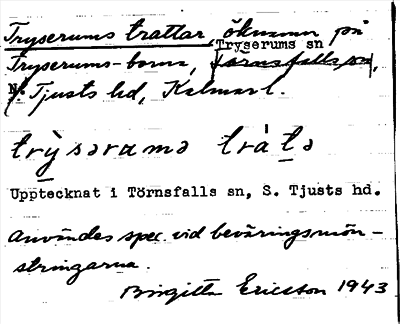 Tryserums trattar, öknamn på
Tryserums sn
Tryserums-borna, Törnsfalls sn,
N. Tjusts hd, Kalmar l.
trỳsərama tràtə
Upptecknat i Törnsfalls sn, S. Tjusts hd.
Användes spec. vid beväringsmön-
stringarna.
Birgitta Ericsson 1943